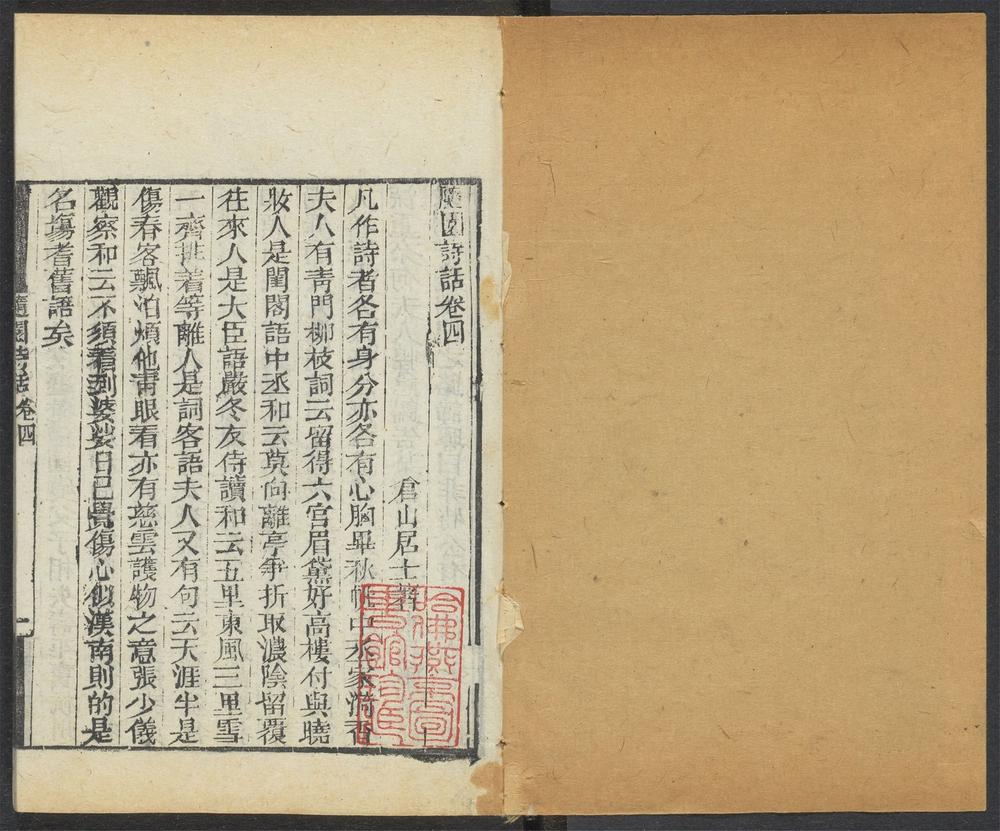 隨園詩話卷四
倉山居士著
凡作詩者各有身分亦各有心胸畢秋帆中丞家漪香
夫人有青門柳枝詞云留得六宮眉黛好高樓付與曉
妝人是閨閣語中丞和云莫向離亭爭折取濃陰留覆
往來人是大臣語嚴冬友侍讀和云五里東風三里雪
一齊排着等離人是詞客語夫人又有句云天涯半是
傷春客飄泊煩他青眼看亦有慈雲護物之意張少儀
觀察和云不須看到婆娑日已覺傷心似漢南則的是
名場耆舊語矣
隨園詩話卷四
哈佛燕京
圖書館珍藏